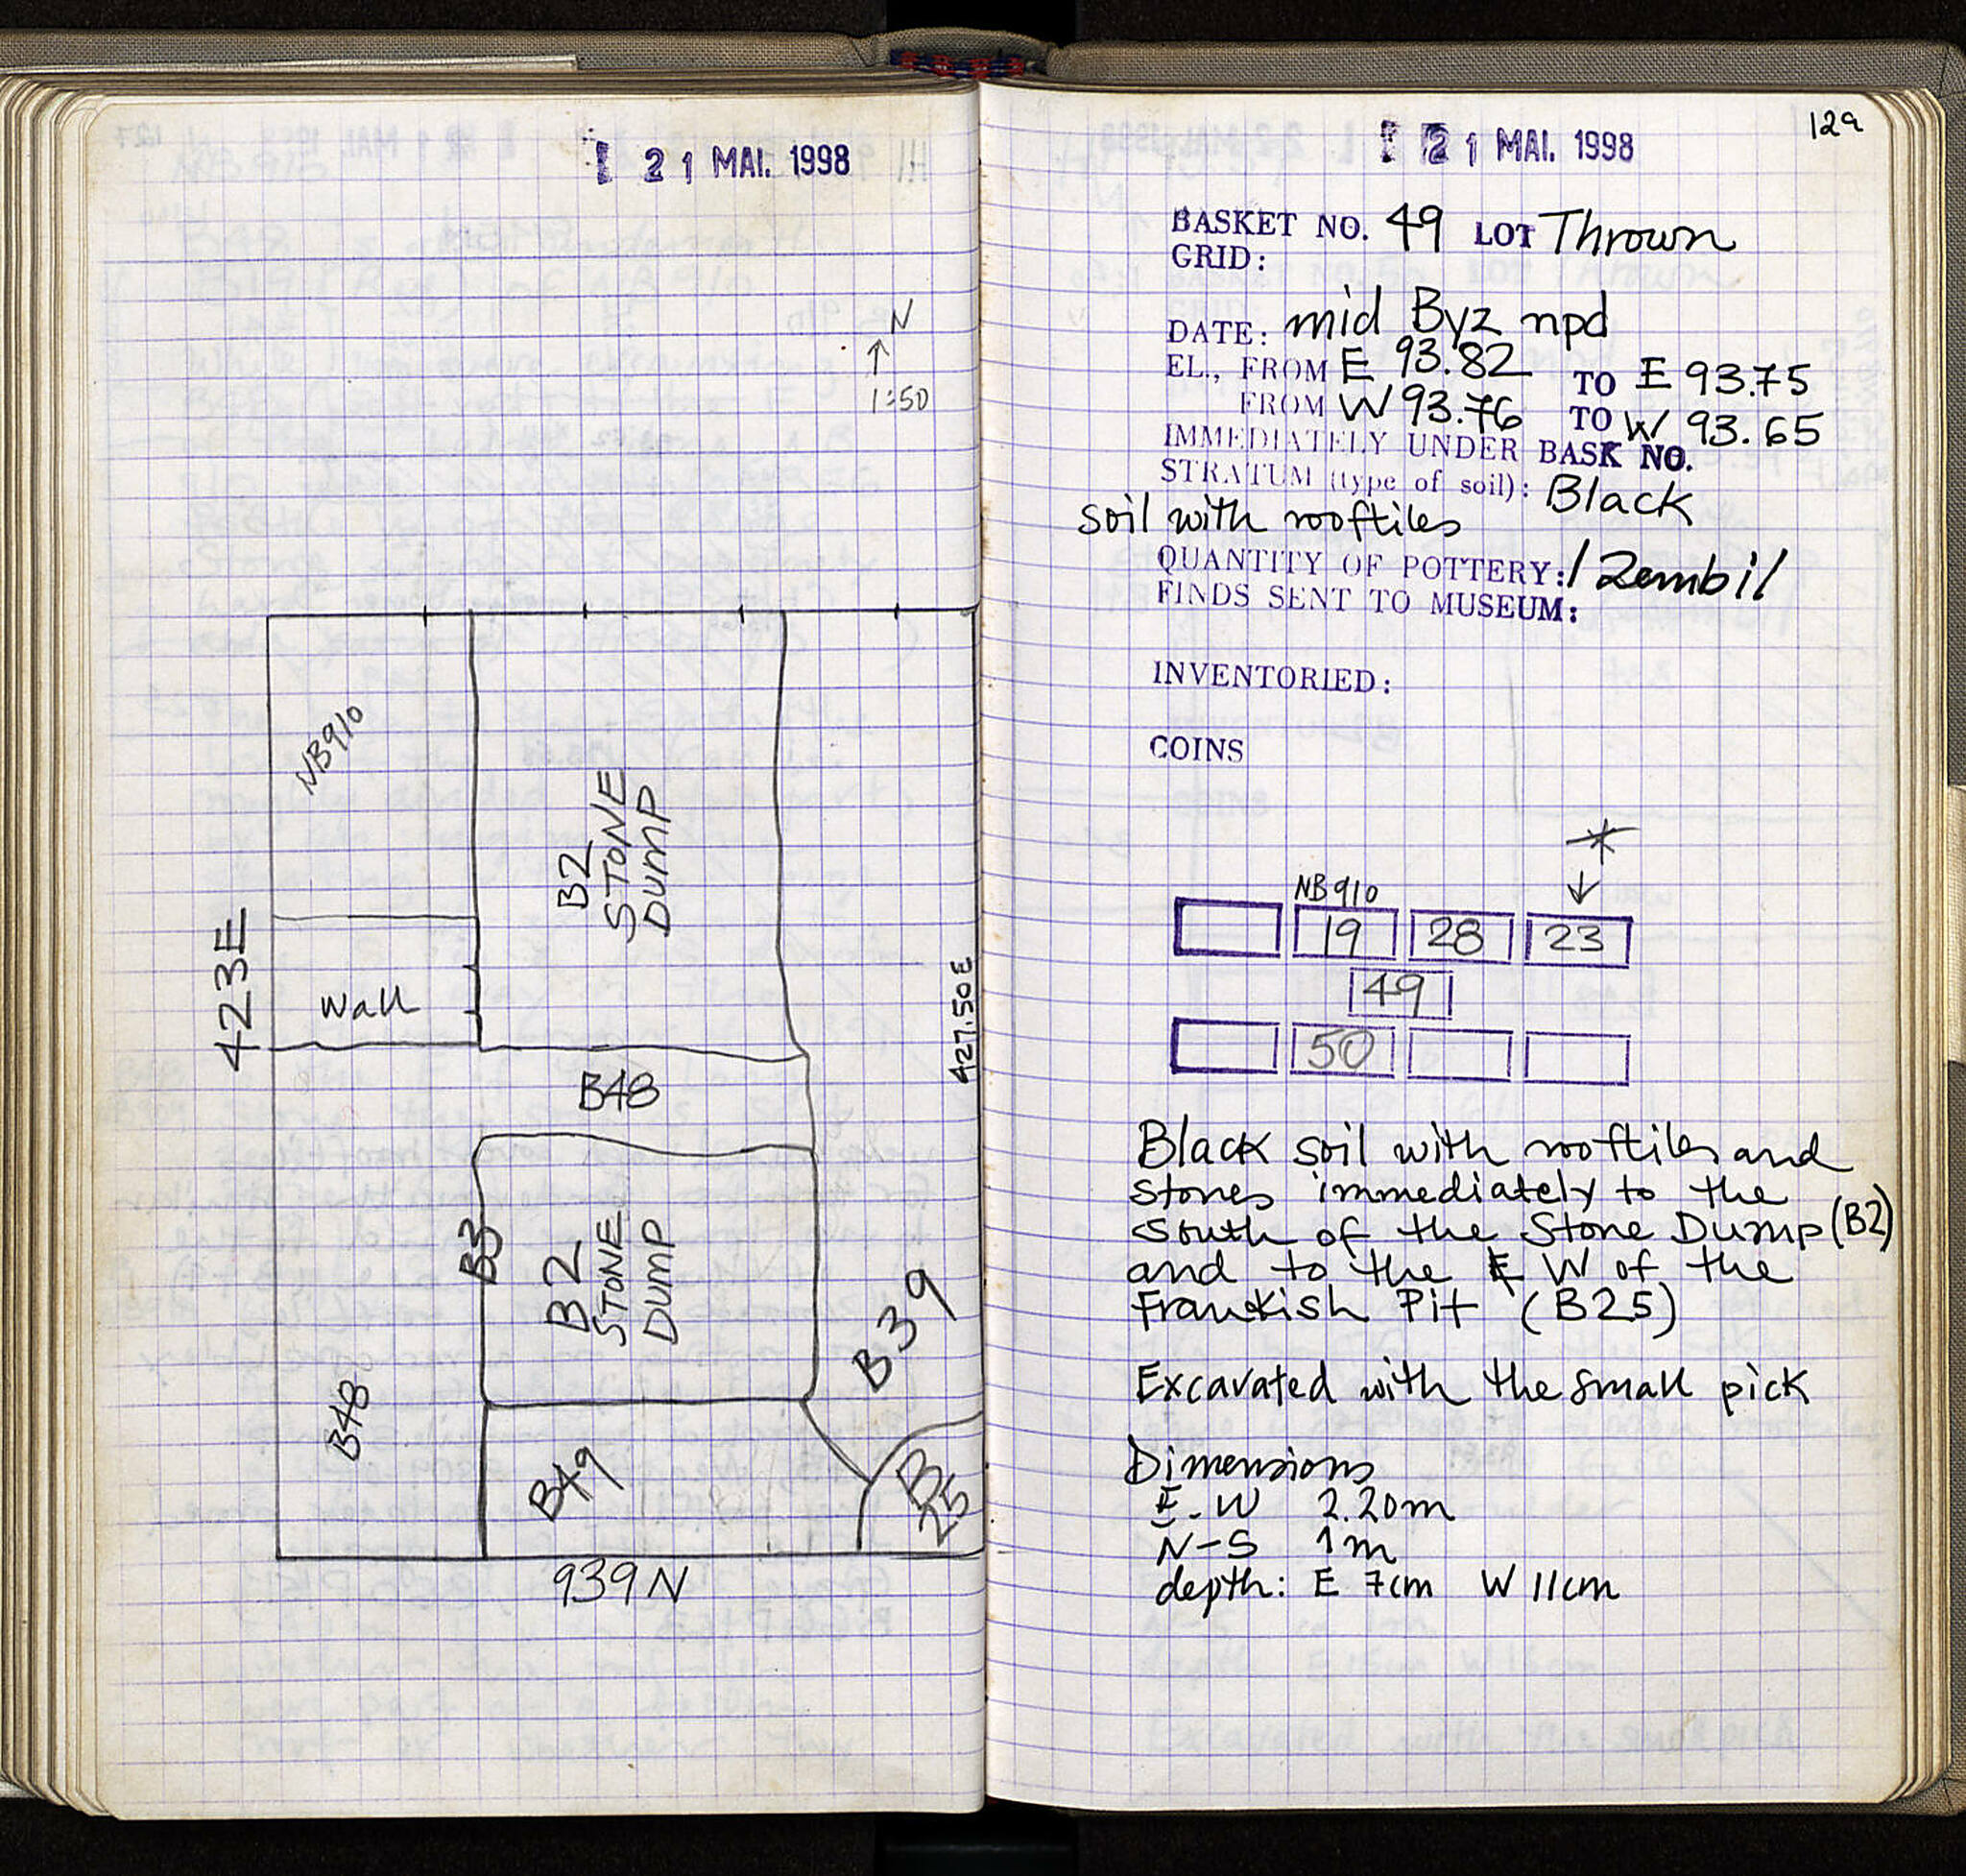 21 MAI. 1998
N
1:50
NB910
B2
STONE
DUMP
423E
Wall
427.50E
B48
B3
B2
STONE
DUMP
B39
B48
B49
B
25
939N
129
21 MAI. 1998
BASKET NO. 49 LOT Thrown
GRID:
DATE: mid Byz npd
EL., FROM E 93.82 TO E 93.75
FROM W 93.76 TO W 93.65
IMMEDIATELY UNDER BASK NO.
STRATUM (type of soil): Black
soil with rooftiles
QUANTITY OF POTTERY: 1 Zembil
FINDS SENT TO MUSEUM:
INVENTORIED:
COINS
*
NB910
19 28 23
49
50
Black soil with rooftiles and
stones immediately to the
south of the Stone Dump (B2)
and to the W of the
Frankish Pit (B25)
Excavated with the small pick
Dimensions
E-W 2.20m
N-S 1m
depth: E 7cm W 11cm